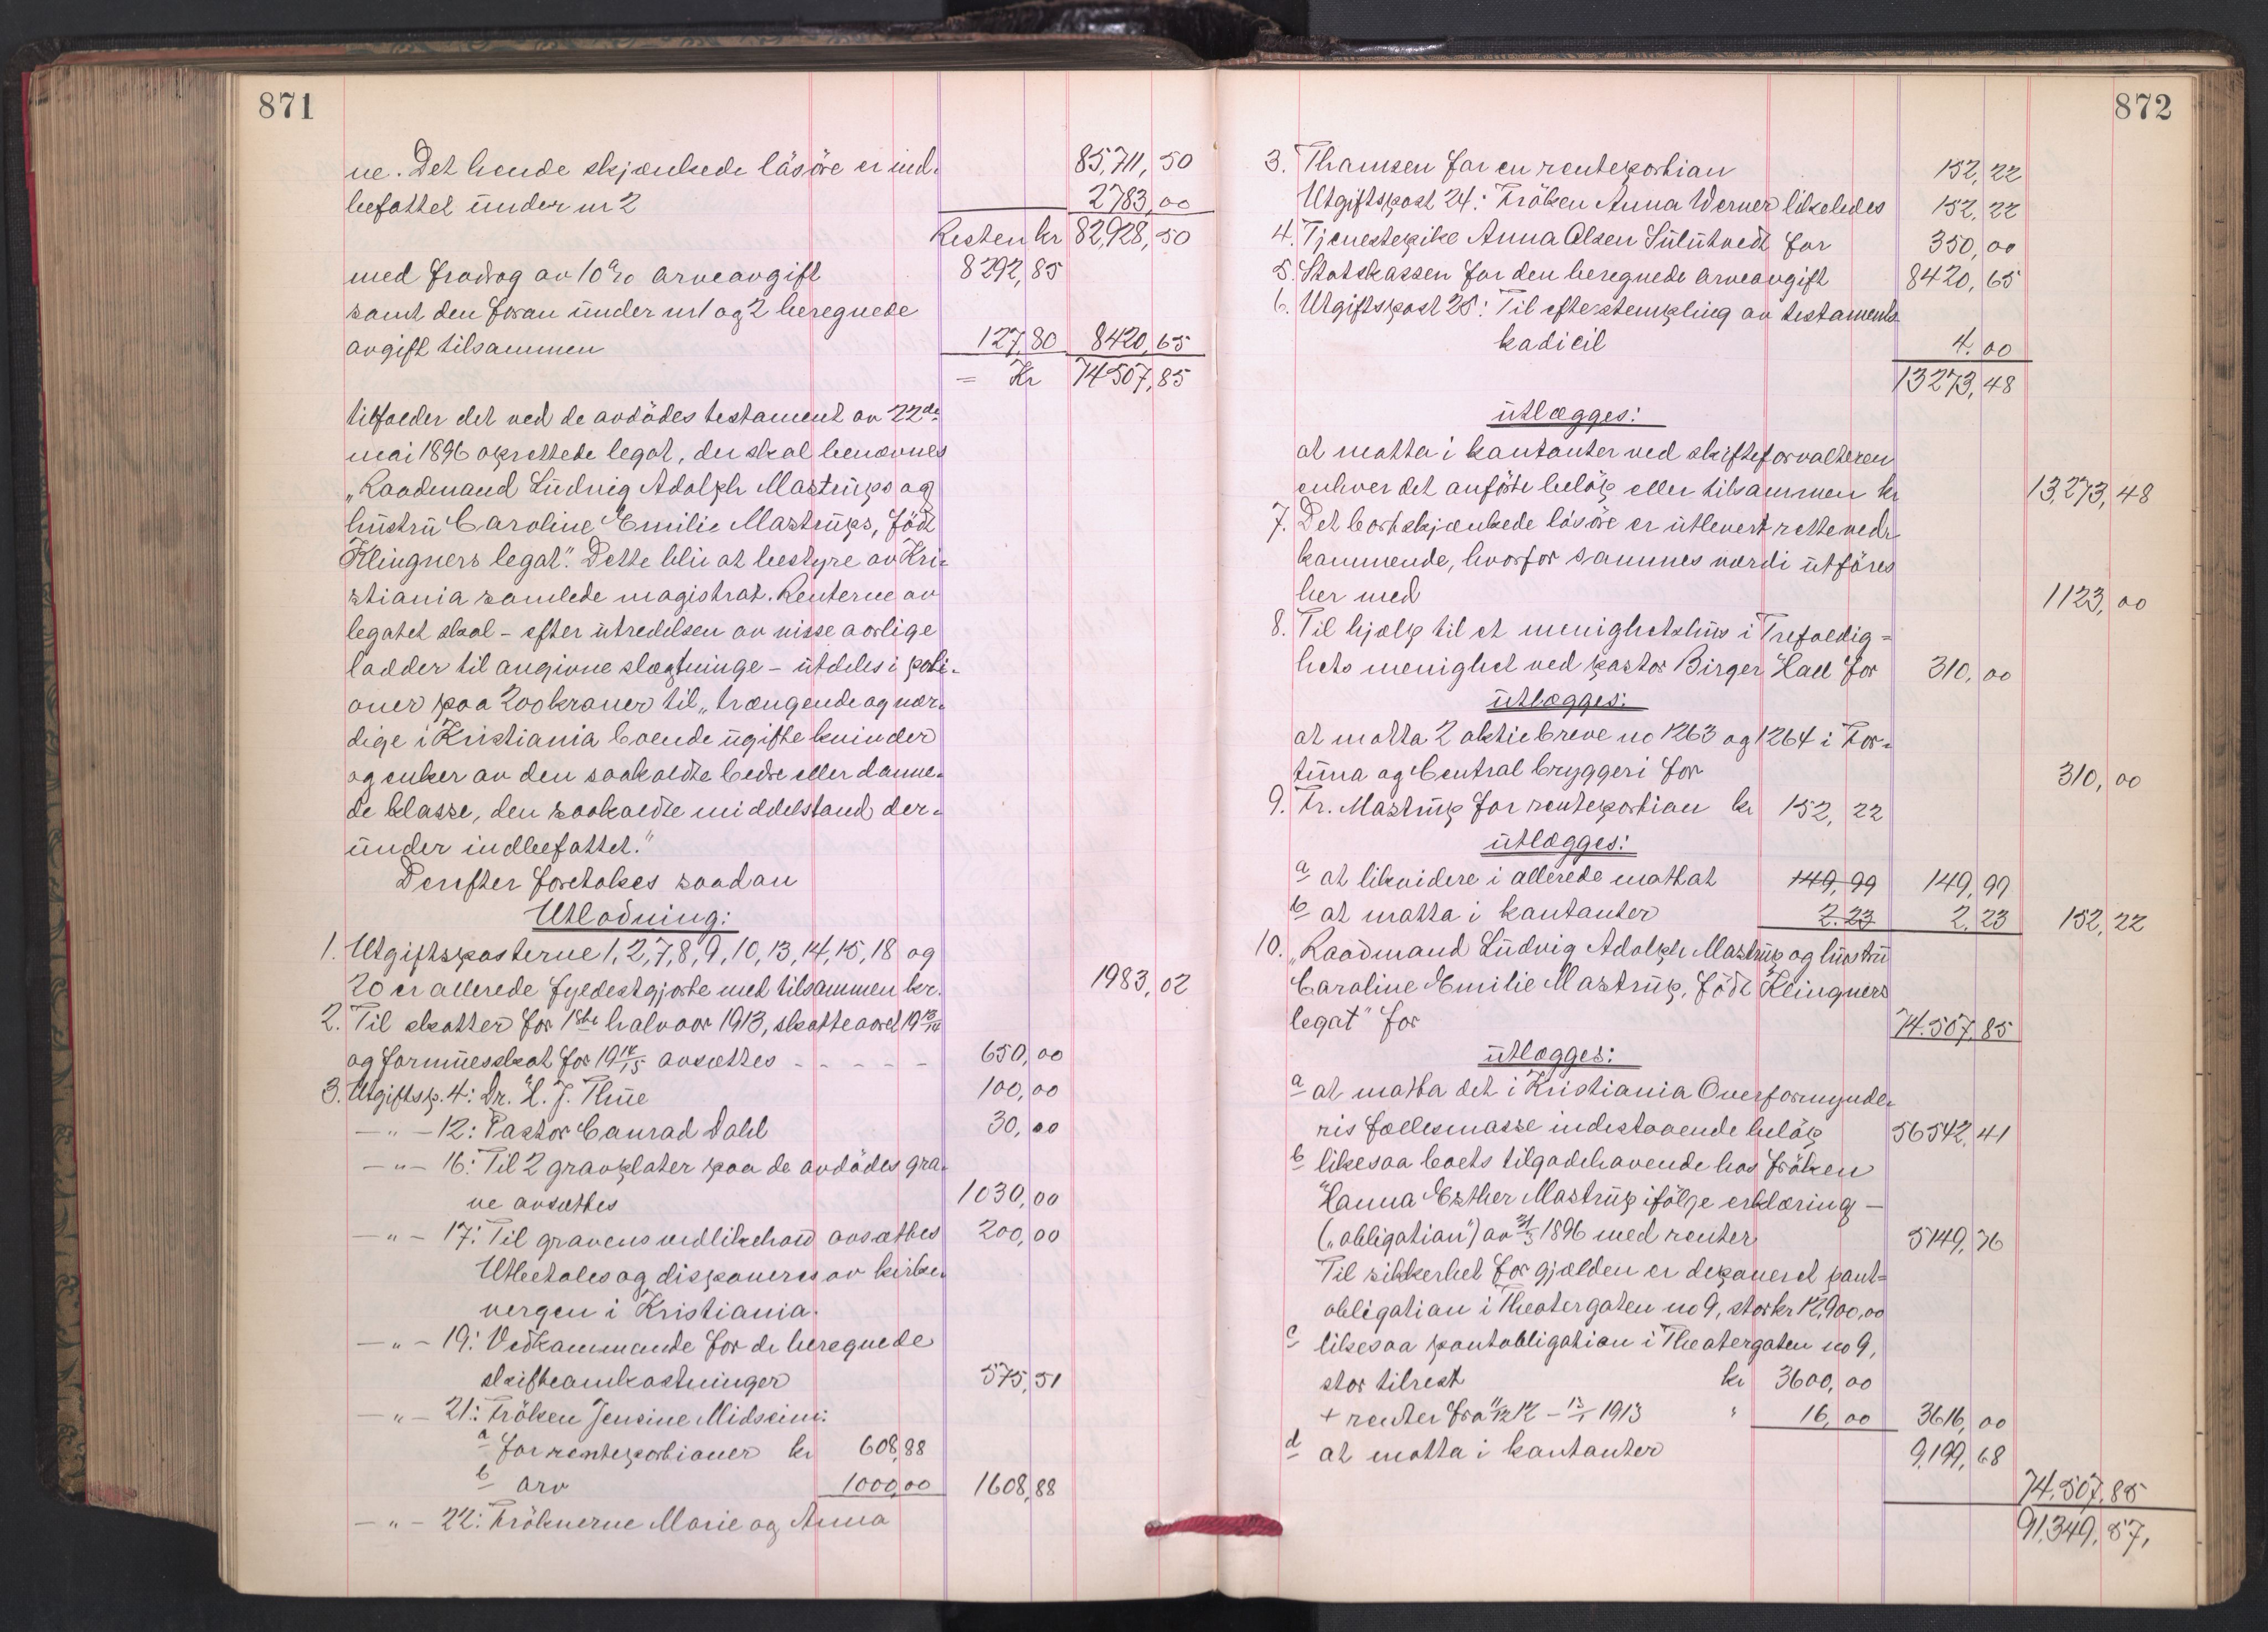 871
ne. Det hende skjænkede løsøre er ind- 85,711,50
befattet under nr 2 2783,00
Resten kr 82,928,50
med fradrag av 10% arveavgift 8292,85
samt den foran under nr 1 og 2 beregnede
avgift tilsammen 127,80 8420,65
= Kr 74507,85
tilfalder det ved de avdødes testament av 22de
mai 1896 oprettede legat, der skal benævnes
„Raadmand Ludvig Adolph Mastrups og
hustru Caroline Emilie Mastrups, født
Klingners legat". Dette blir at bestyre av Kri-
stiania samlede magistrat. Renterne av
legatet skal - efter utredelsen av visse aarlige
lodder til angivne slægtninge - utdeles i porti-
oner paa 200 kroner til „trængende og vær-
dige i Kristiania boende ugifte kvinder
og enker av den saakaldte bedre eller danne-
de klasse, den saakaldte middelstand der-
under indbefattet."
Derefter foretokes saadan
Utlodning:
1. Utgiftsposterne 1, 2, 7, 8, 9, 10, 13, 14, 15, 18 og
20 er allerede fyldestgjorte med tilsammen kr. 1983,02
2. Til skatter for 1ste halvaar 1913, skatteaaret 19 13/14
og formuesskat for 19 14/15 avsættes - - - - - 650,00
3. Utgiftsp. 4: Dr. H. J. Thue 100,00
— „ — 12: Pastor Conrad Dahl 30,00
— „ — 16: Til 2 gravplater paa de avdødes gra-
ve avsættes 1030,00
— „ — 17: Til gravens vedlikehold avsættes 200,00
Utbetales og disponeres av kirke-
vergen i Kristiania.
— „ — 19: Vedkommende for de beregnede
skifteomkostninger 575,51
— „ — 21: Frøken Jensine Midseim:
a for renteportioner kr 608,88
b arv 1000,00 1608,88
— „ — 22: Frøknerne Marie og Anna
872
3. Thomsen for en renteportion 152,22
Utgiftspost 24: Frøken Anna Werner likeledes 152,22
4. Tjenestepike Anna Olsen Sulutvedt for 350,00
5. Statskassen for den beregnede arveavgift 8420,65
6. Utgiftspost 25: Til efterstempling av testaments-
kodicil 4.00
13273,48
utlægges:
at motta i kontanter ved skifteforvalteren
enhver det anførte beløp eller tilsammen kr 13,273,48
7. Det bortskjænkede løsøre er utlevert rette ved-
kommende, hvorfor sammes værdi utføres
her med 1123,00
8. Til hjælp til et menighetshus i Trefoldig-
hets menighet ved pastor Birger Hall for 310,00
utlægges:
at motta 2 aktiebreve no 1263 og 1264 i For-
tuna og Central bryggeri for 310,00
9. Fr. Mastrup for renteportion kr 152,22
utlægges:
a at likvidere i allerede mottat 149,99 149,99
b at motta i kontanter 2.23 2,23 152,22
10. „Raadmand Ludvig Adolph Mastrup og hustru
Caroline Emilie Mastrup, født Klingners
legat" for 74.507,85
utlægges:
a at motta det i Kristiania Overformynde-
ris fællesmasse indestaaende beløp 56542,41
b likesaa boets tilgodehavende hos frøken
Hanna Esther Mastrup ifølge erklæring —
(„obligation") av 21/5 1896 med renter 5149,76
Til sikkerhet for gjælden er deponeret pant-
obligation i Theatergaten no 9, stor kr 12,900,00
c likesaa pantobligation i Theatergaten no 9,
stor tilrest kr 3600,00
+ renter fra 11/12 12 - 13/1 1913 " 16,00 3616,00
d at motta i kontanter 9,199,68
74,507,85
91,349,57,